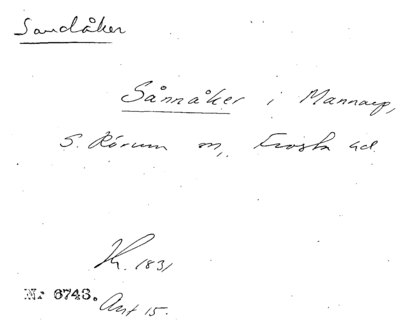 Sandåker
Sånnåker i Mannarp,
S. Rörum sn, Frosta hd.
1831
Nr 6743. Ant 15.